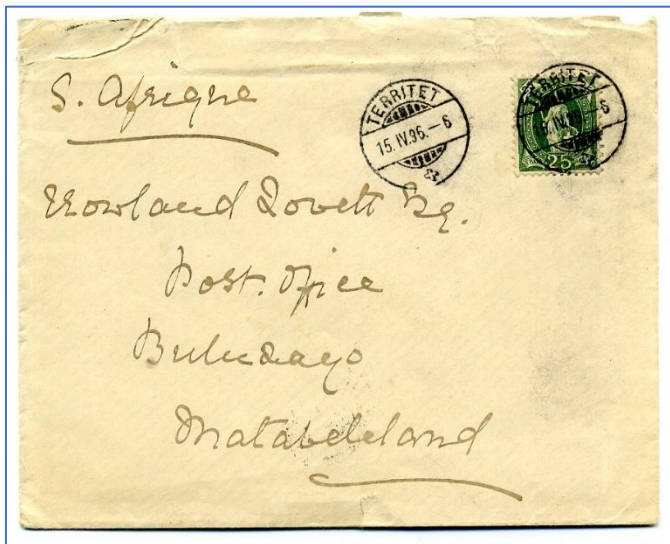 S. Afrique
TERRITET
15. IV. 96. – 6
TERRITET
IV. 96. – 6
25
Rowland Lovett Esq.
Post. Office
Buluwayo
Matabeleland